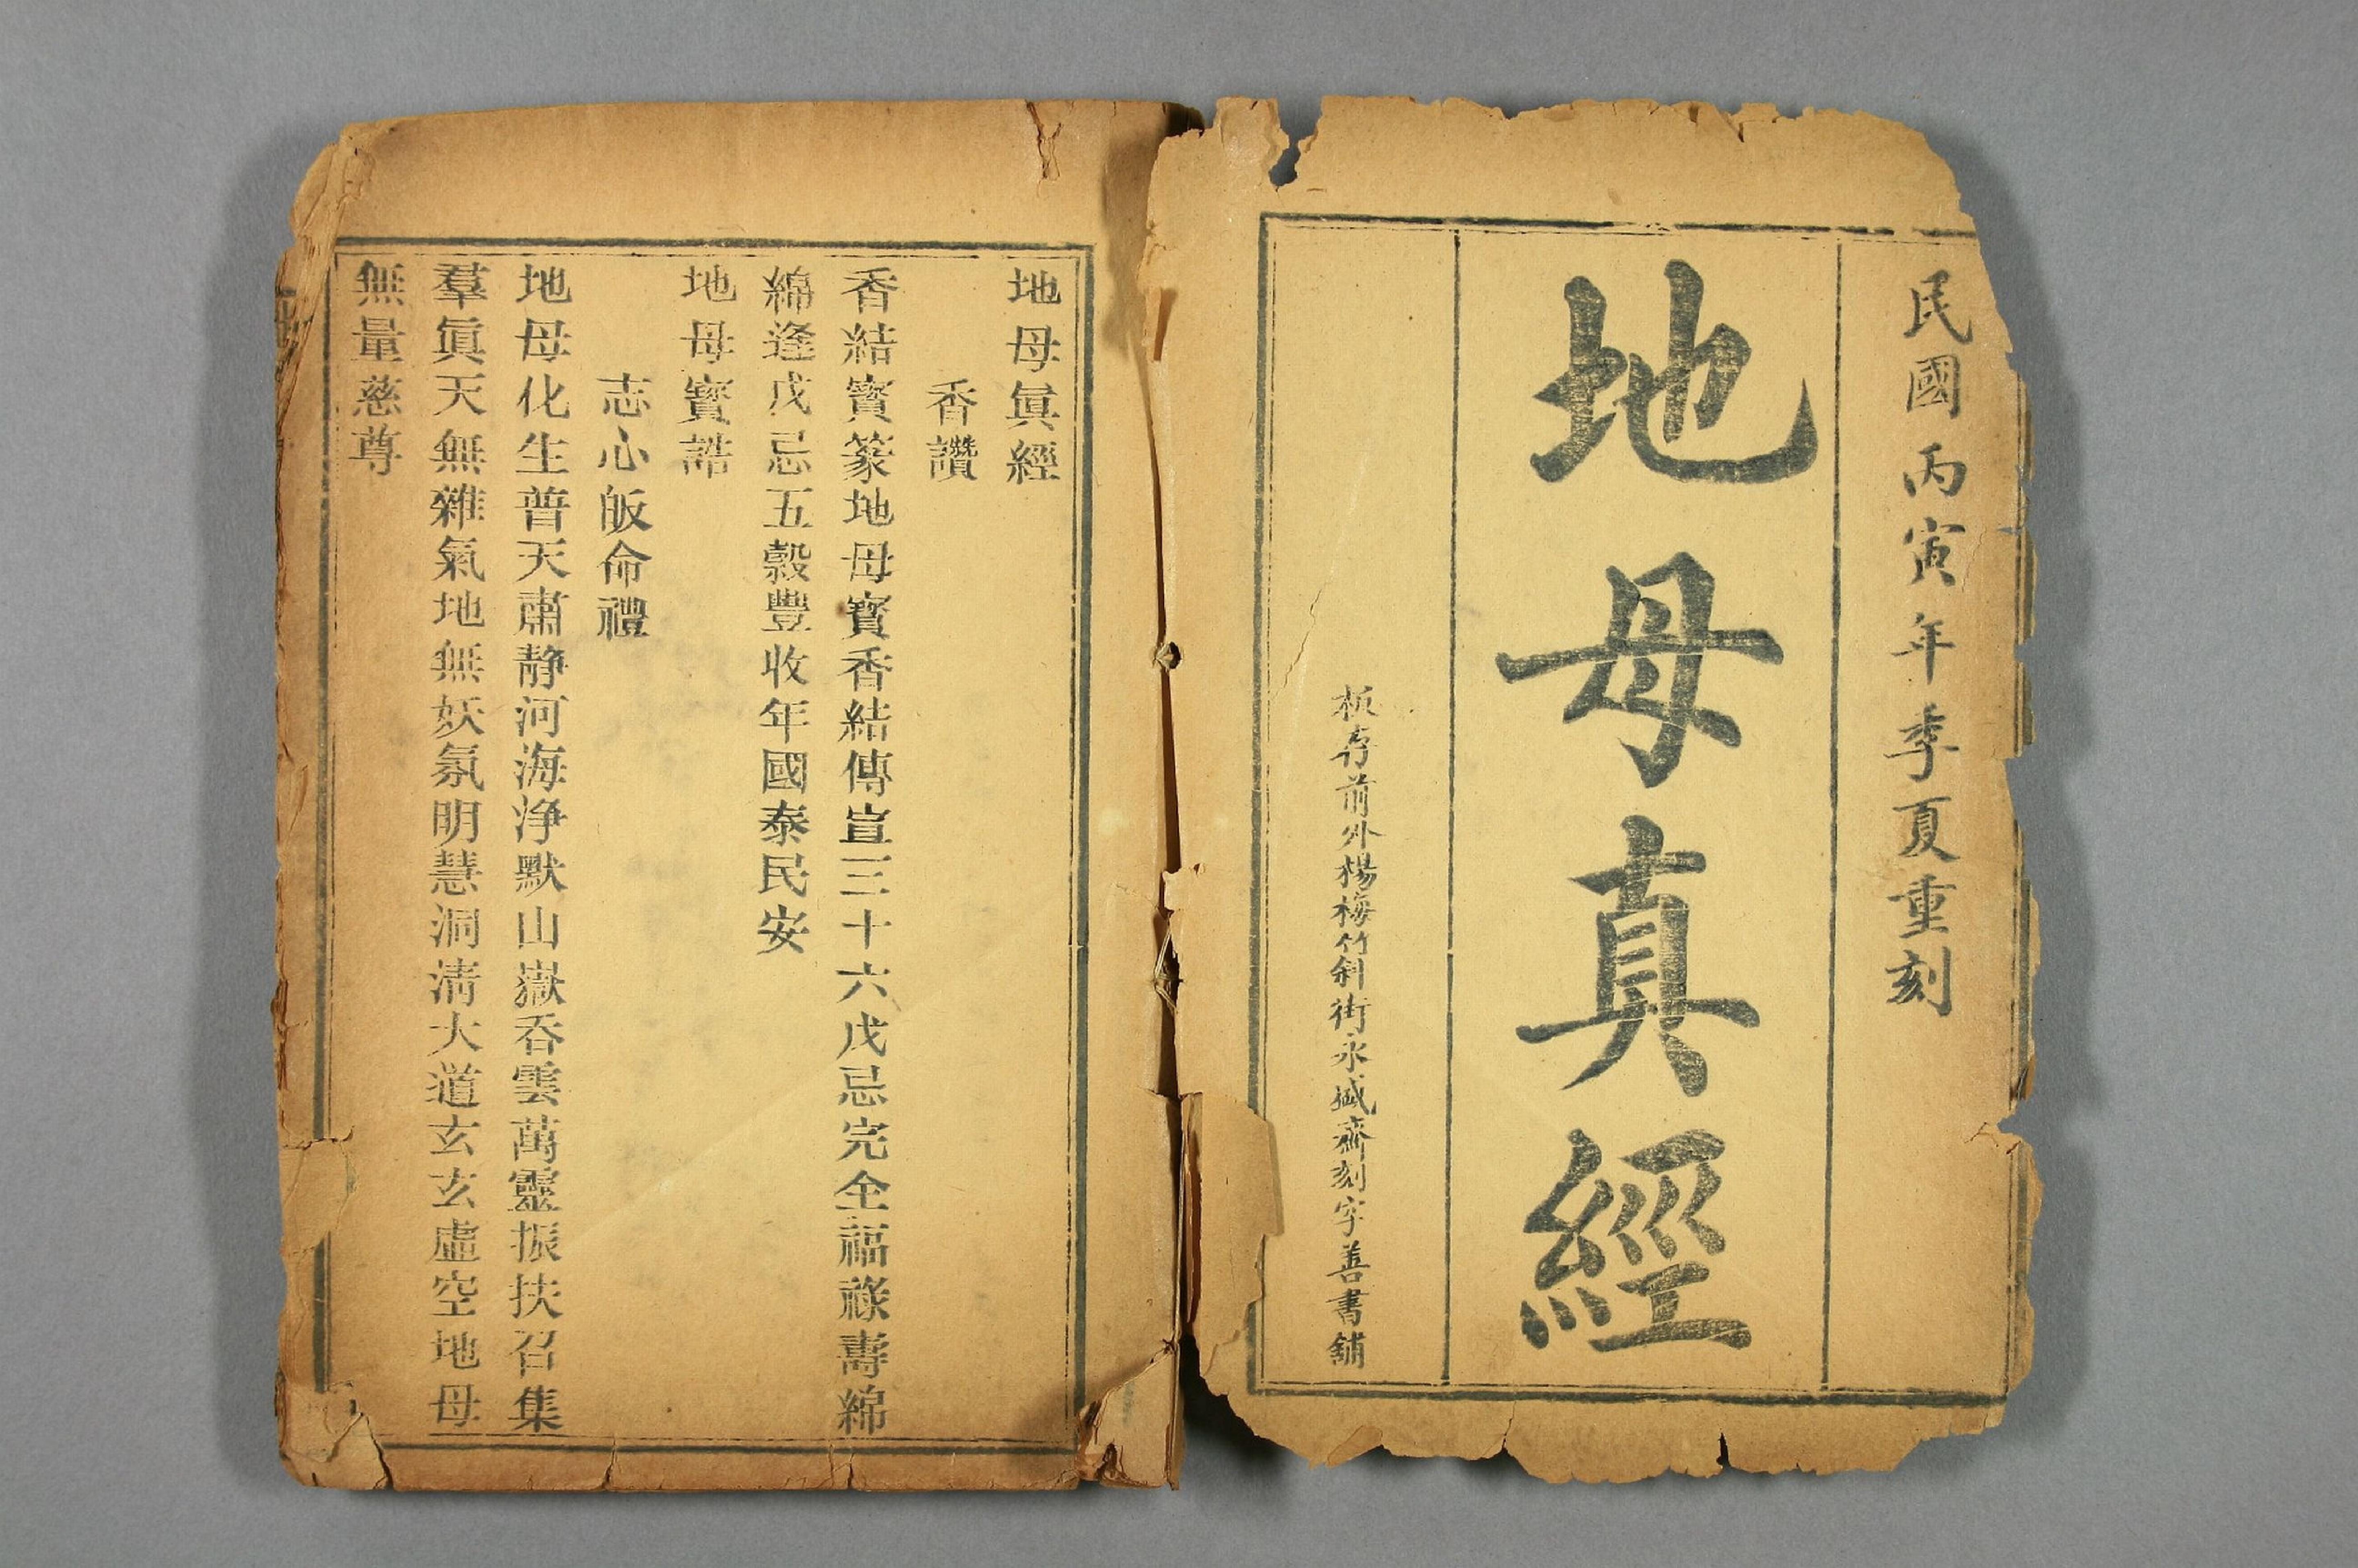 民國丙寅年季夏重刻
地母真經
板存前外楊梅竹斜街永盛齋刻字善書舖
地母眞經
香讚
香結寳篆地母寳香結傳宣三十六戊忌完全福祿壽綿
綿逢戊忌五榖豐收年國泰民安
地母寳誥
志心皈命禮
地母化生普天肅静河海淨默山嶽吞雲萬靈振扶召集
羣眞天無雜氣地無妖氛明慧洞清大道玄玄虛空地母
無量慈尊